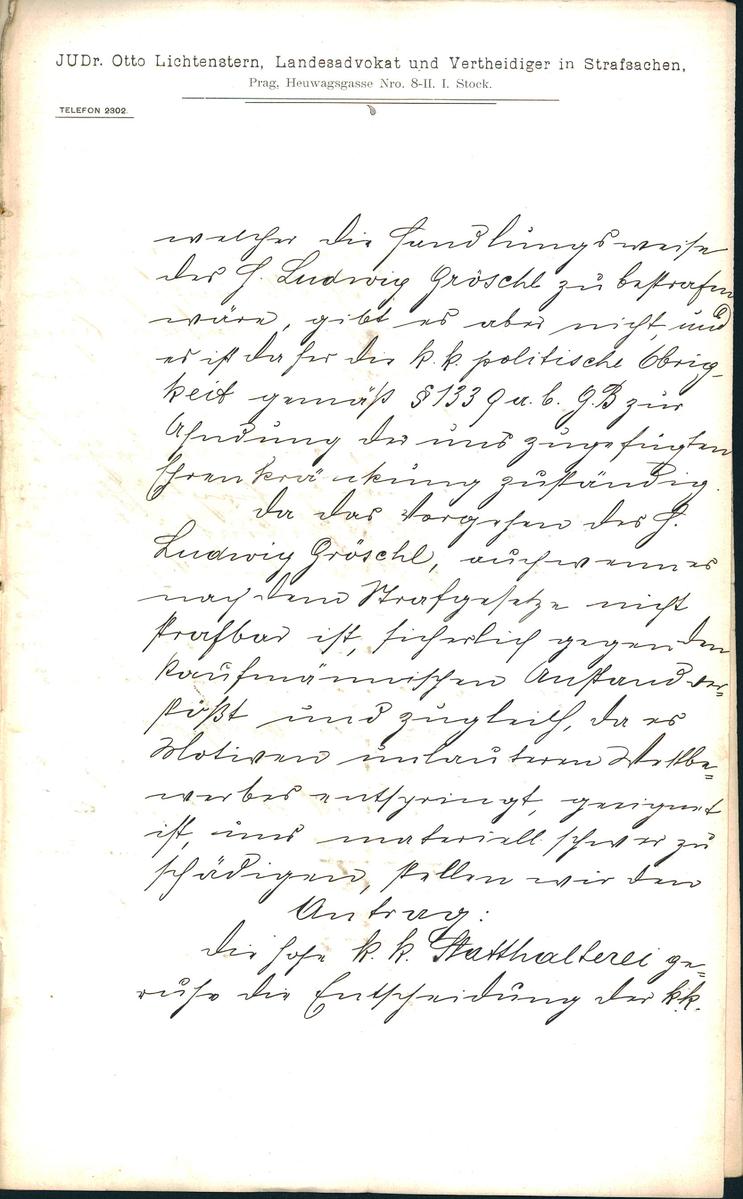 JUDr. Otto Lichtenstern, Landesadvokat und Vertheidiger in Strafsachen,
Prag, Heuwagsgasse Nro. 8-II. I. Stock.
TELEFON 2302.
welcher die Handlungsweise
des H. Ludwig Gröschl zu bestrafen
wäre, gibt es aber nicht, und
es ist daher die k. k. politische Obrig-
keit gemäß § 1339 a. b. G. B zur
Ahndung der uns zugefügten
Ehrenkränkung zuständig.
Da das Vorgehen des H.
Ludwig Gröschl, auch wenn es
nach dem Strafgesetze nicht
strafbar ist, sicherlich gegen den
kaufmännischen Anstand ver=
stößt und zugleich, da es
Motiven unlauteren Wettbe=
werbes entspringt, geeignet
ist, uns materiell schwer zu
schädigen, stellen wir den
Antrag:
die hohe k. k. Statthalterei ge=
ruhe die Entscheidung der k.k.